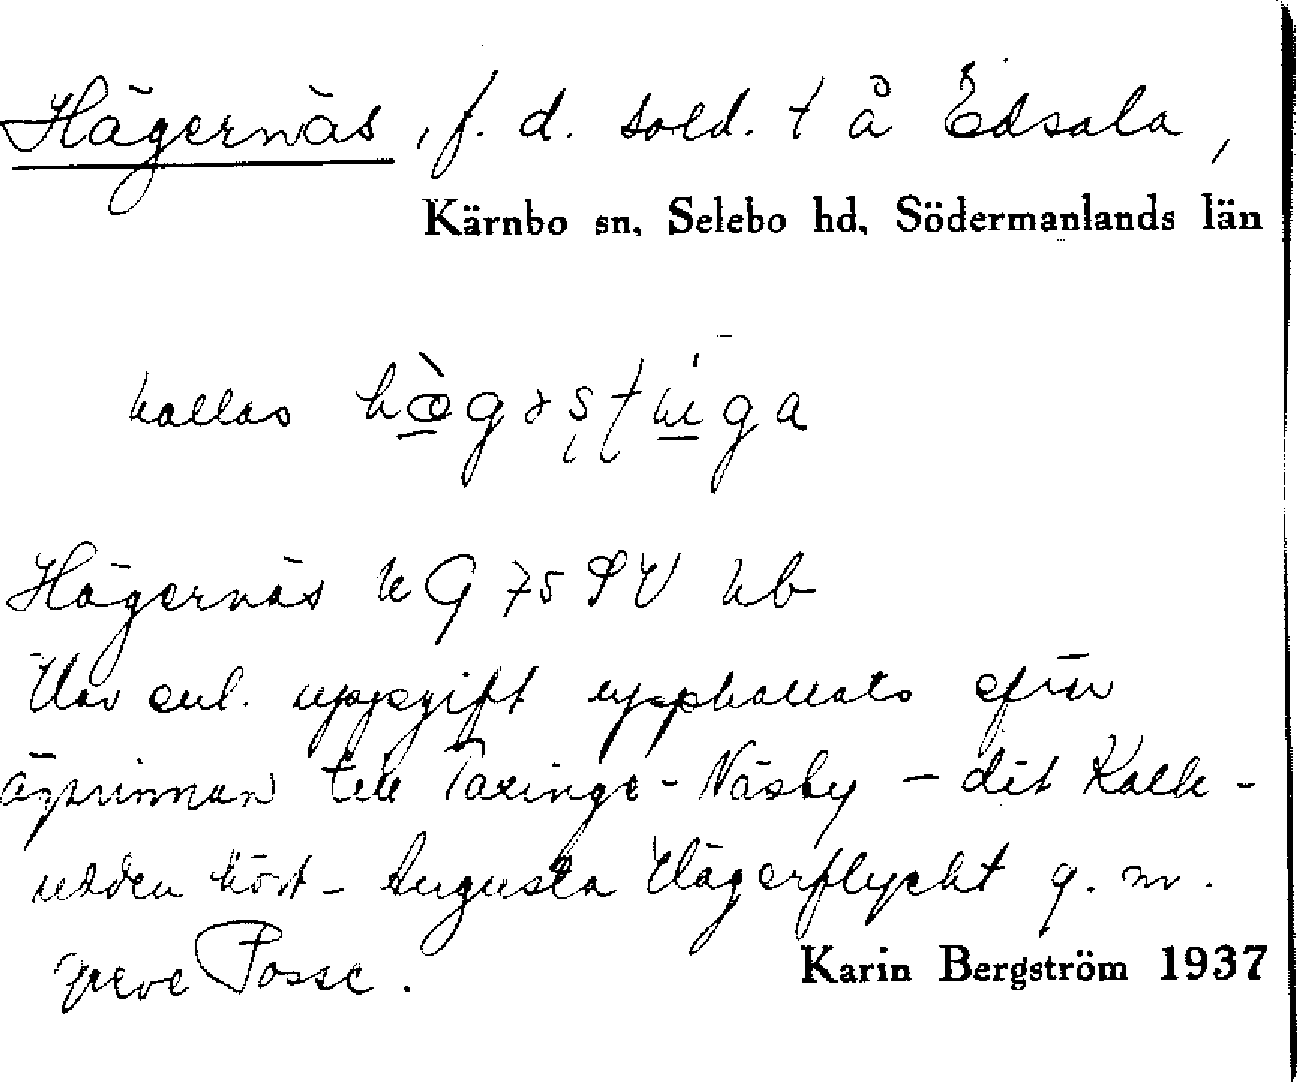 Hägernäs, f. d. sold. t å Edsala,
Kärnbo sn, Selebo hd, Södermanlands län
kallas hæ̀gəstúga
Hägernäs k G 75 SV kb
Har enl. uppgift uppkallats efter
ägarinnan till Taxinge-Näsby – dit Kalk-
udden hört – Augusta Hägerflycht g. m.
greve Posse.
Karin Bergström 1937